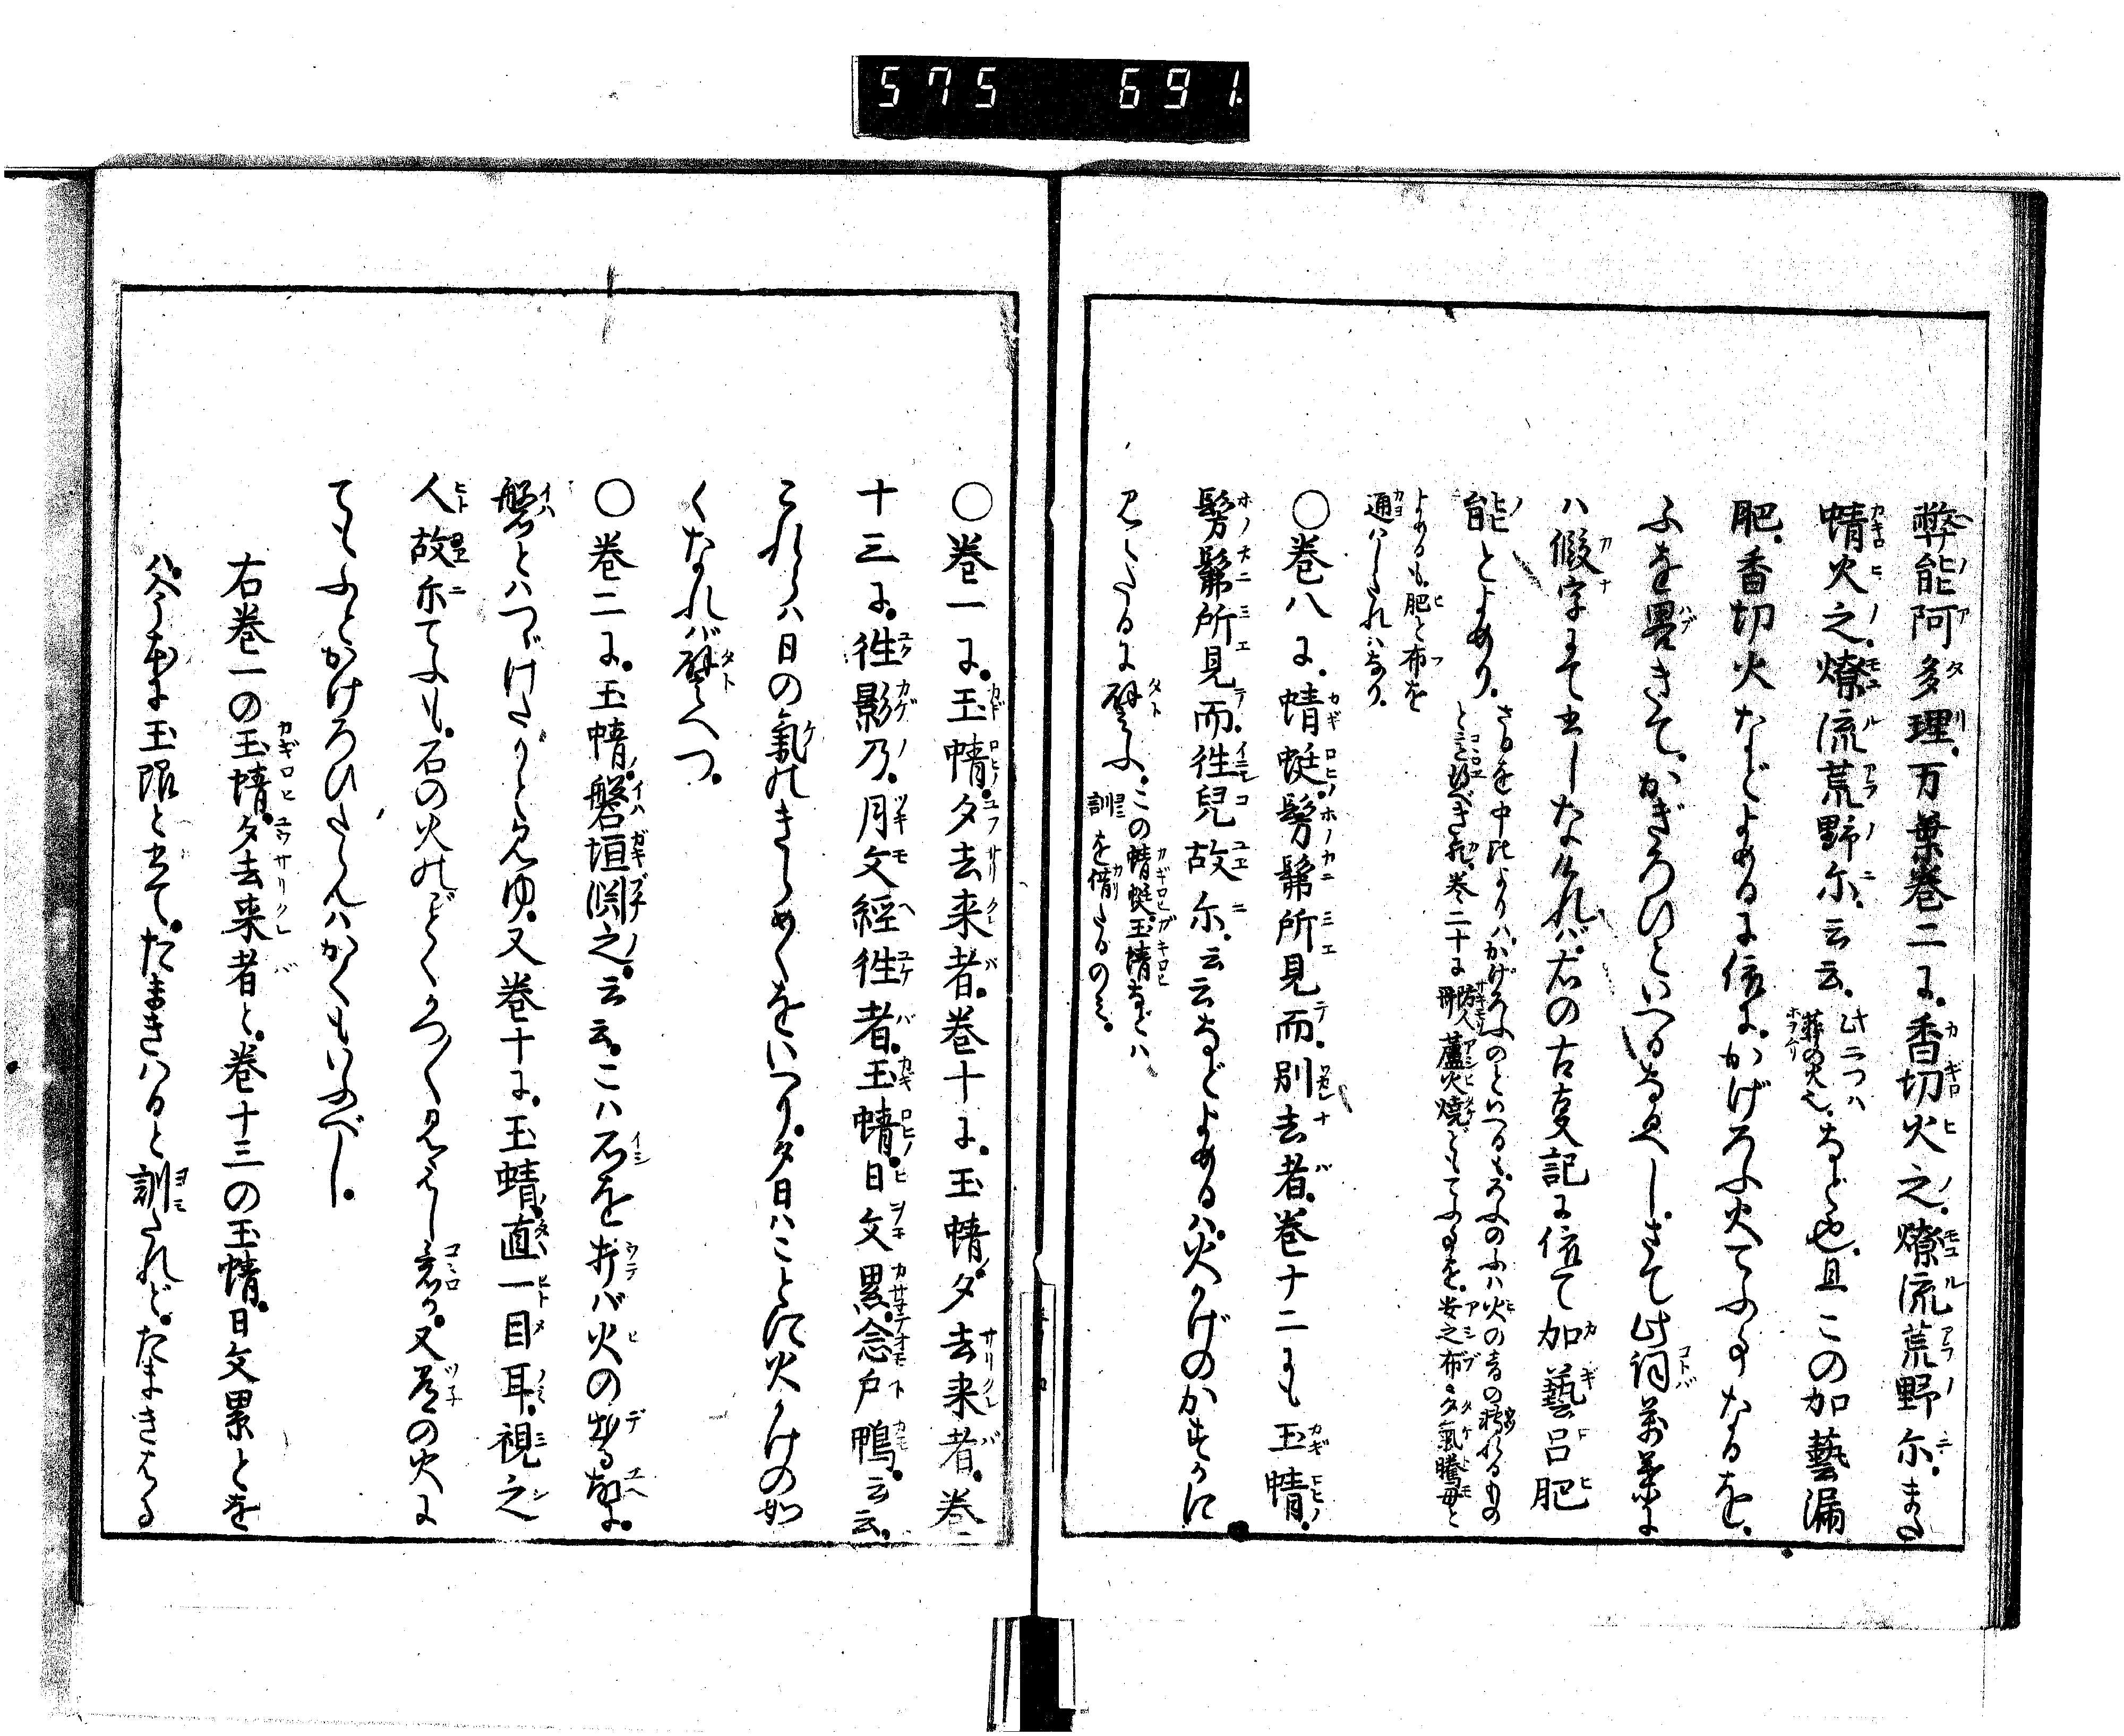 575 691
弊能阿多理。万葉巻二に。香切火之。燎流荒野尓。また
蜻火之。燎流荒野尓。云云。此二つハ葬の火也。など也。且この加藝漏
肥。香切火などよめるに依に。かげろふ火てふ事なるを。
ふを畧きて。かぎろひといへるなるべし。さて此詞萬葉に
ハ假字にて書しなけれバ。右の古事記に依て加藝呂肥
能とよめり。さるを中比よりハ。かげろふのといへるも。
と意得べき也。巻二十に防人蘆火燒どもてふ事を。安之布多氣騰母と
よめるも肥と布を
通ハしたれハなり。
〇巻八に。蜻蜓髣髴所見而。別去者。巻十二にも玉蜻。
髣髴所見而。徃兒故尓。云云などよめるハ。火かげのかすかに
見えたるに譬ふ。この蜻蜓玉蜻などハ
訓を借たるのミ。
〇巻一に。玉蜻。夕去来者。巻十に。玉蜻。夕去来者。巻
十三に。徃影乃。月文經徃者。玉蜻。日文累。念戸鴨。云云。
これらハ日の氣のきらめくをいへり。夕日ハことに火かけの如
くなれバ譬へつ。
〇巻二に。玉蜻。磐垣渕之。云云。こハ石を打バ火の出る故に。
磐とハつゞけたりと見ゆ。又巻十に。玉蜻。直一目耳。視之
人故尓てふも。石の火のごとくかつ〳〵見えし意か。又常の火に
てもふとかけろひたらんハかくもいふべし。
右巻一の玉蜻。夕去来者と。巻十三の玉蜻。日文累とを
ハ。今本に玉限と書て。たまきハると訓たれど。たまきはる